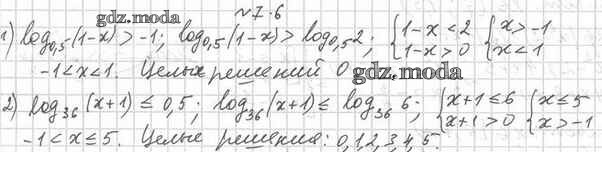 №7.6
gdz.moda
1) log₀,₅(1-x) > -1; log₀,₅(1-x) > log₀,₅2; { 1-x < 2 { x > -1
1-x > 0 x < 1
-1 < x < 1. Целых решений 0
gdz.moda
2) log₃₆(x+1) ≤ 0,5; log₃₆(x+1) ≤ log₃₆ 6; { x+1 ≤ 6 { x ≤ 5
x+1 > 0 x > -1
-1 < x ≤ 5. Целые решения: 0,1,2,3,4,5.